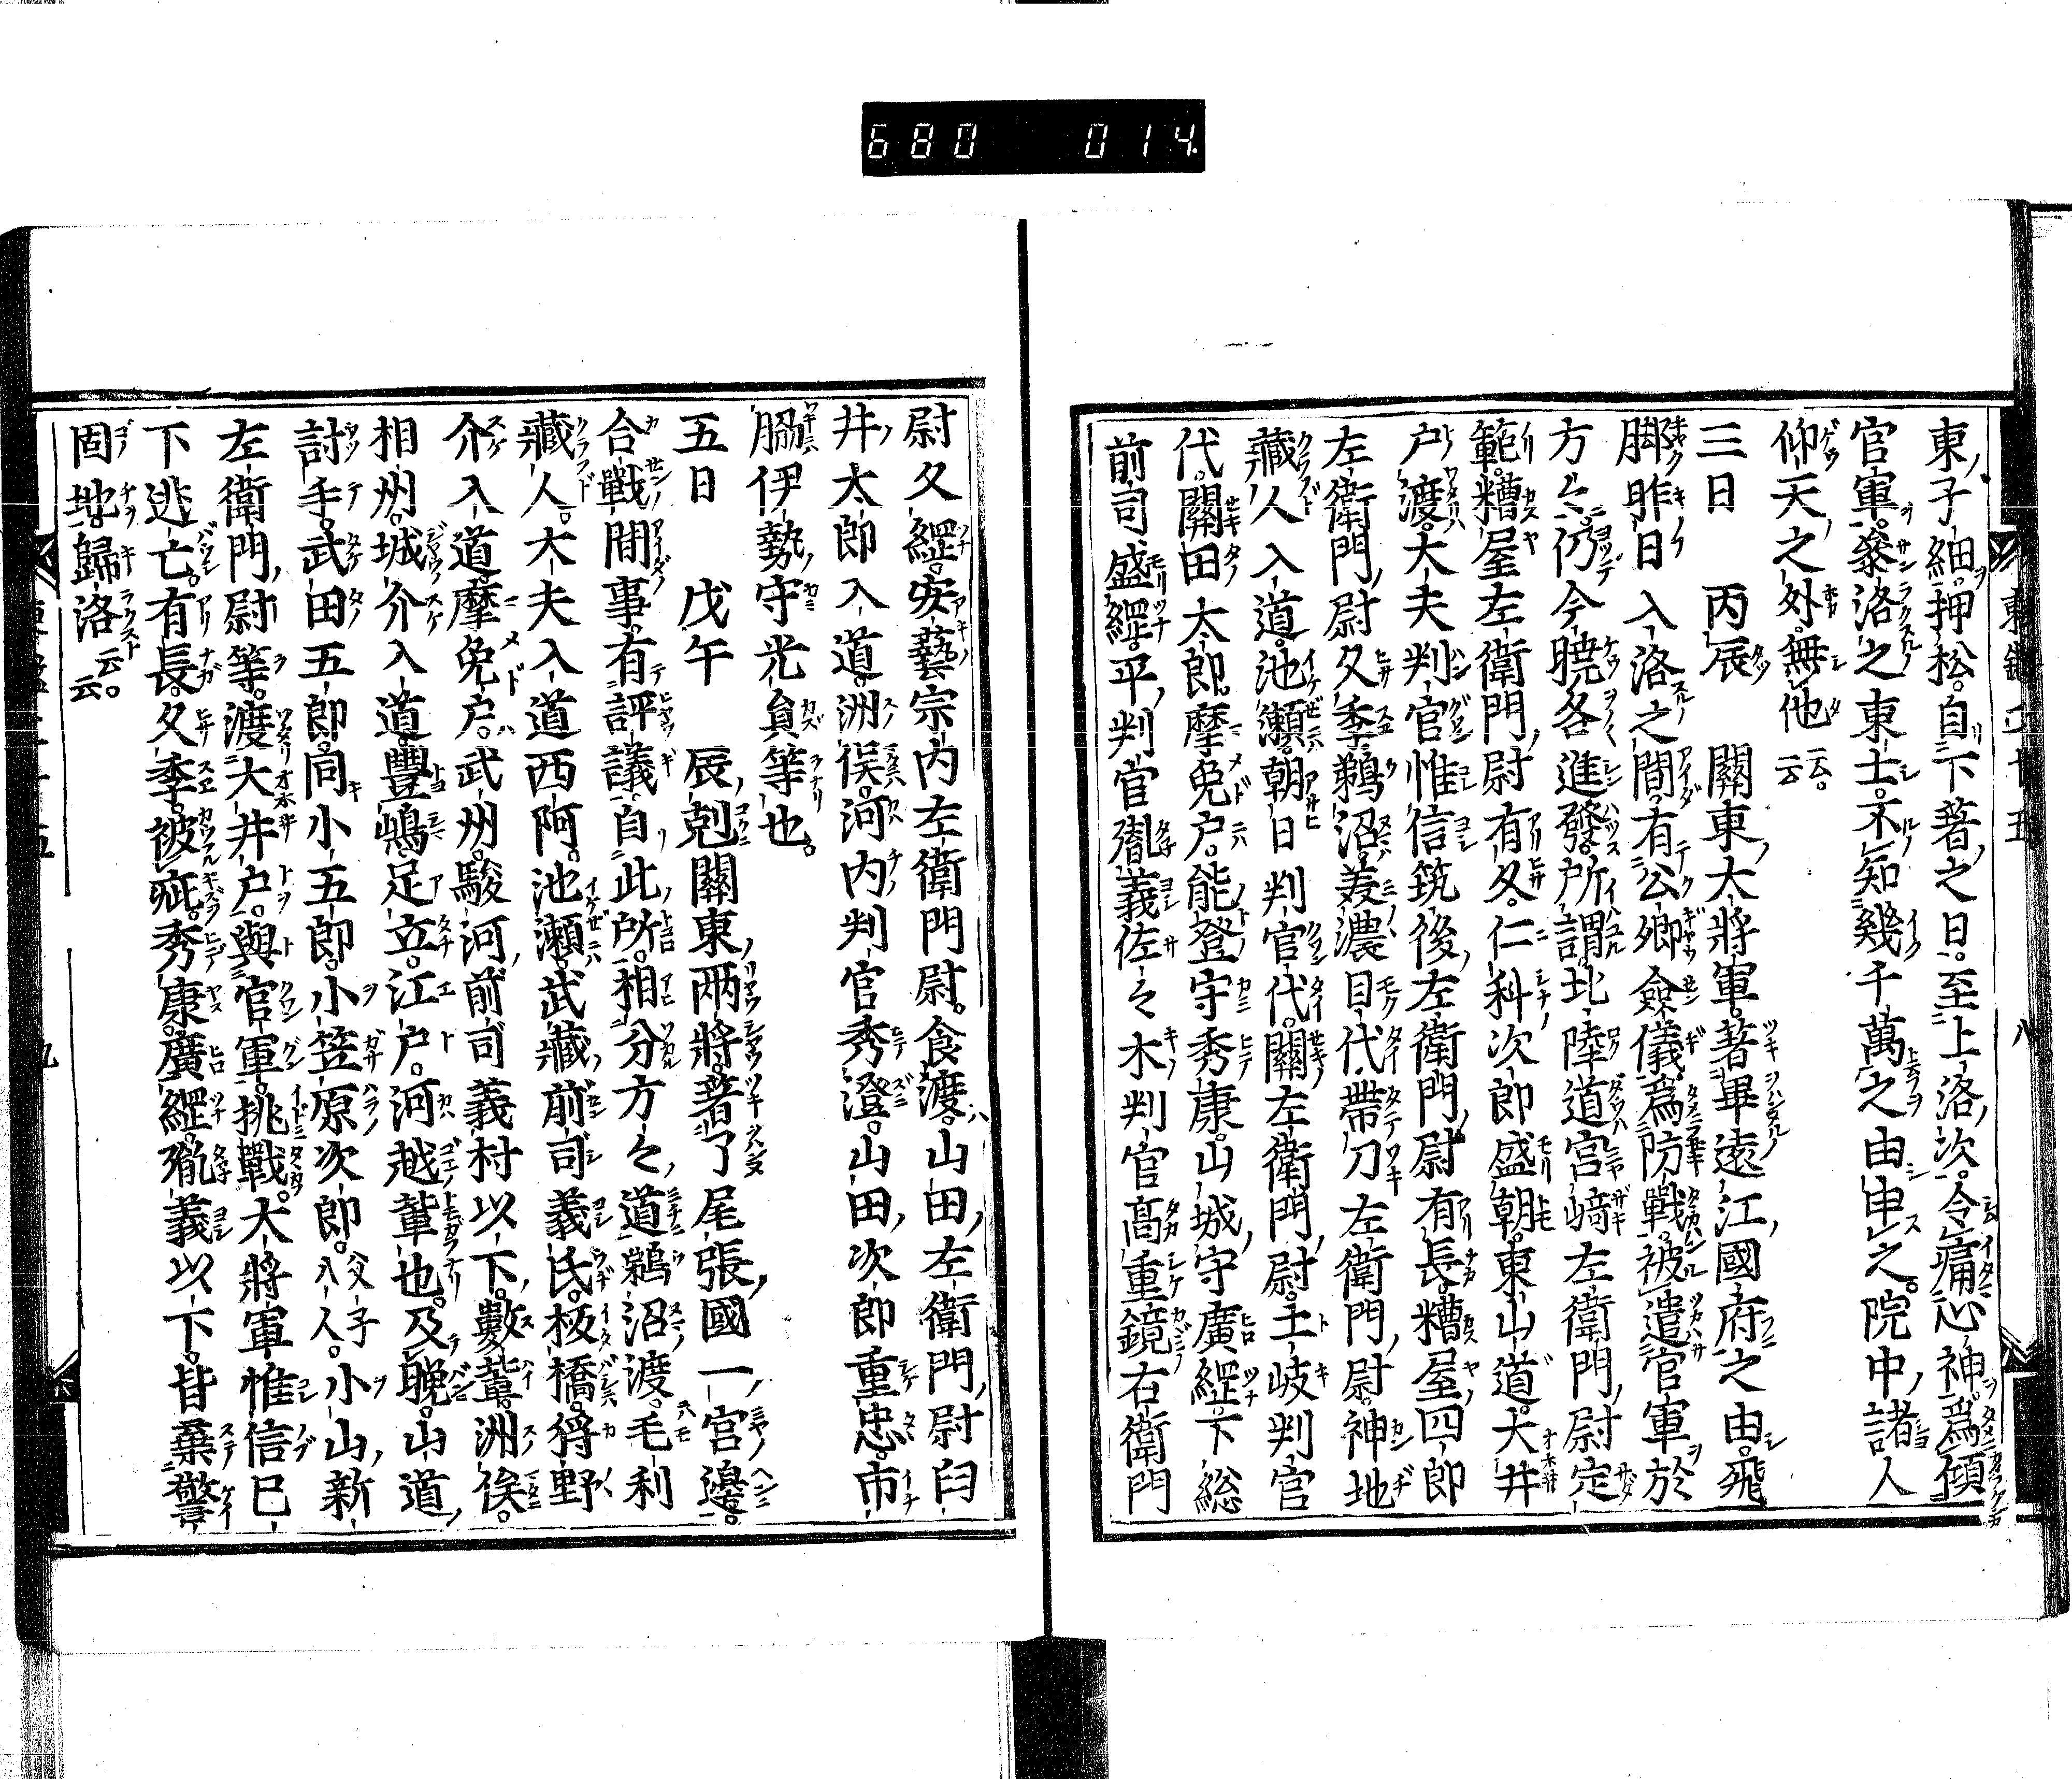 680 014
東子細。押松。自下著之日。至上洛次。令痛心神。爲傾
官軍。參洛之東士。不知幾千萬之由申之。院中諸人
仰天之外。無他云云。
三日 丙辰 關東大將軍。著畢遠江國府之由。飛
脚昨日入洛之間。有公卿僉儀。爲防戰。被遣官軍於
方々。仍今曉各進發。所謂北陸道宮﨑左衛門尉定
範。糟屋左衛門尉有久。仁科次郎盛朝。東山道。大井
戸渡。大夫判官惟信筑後左衛門尉有長。糟屋四郎
左衛門尉久季。鵜沼。美濃目代帶刀左衛門尉。神地
藏人入道。池瀬。朝日判官代。關左衛門尉。土岐判官
代。關田太郎。摩免戸。能登守秀康。山城守廣綱。下総
前司盛綱。平判官胤義佐々木判官高重鏡右衛門
尉久綱。安藝宗内左衛門尉。食渡。山田左衛門尉臼
井太郎入道。洲俣。河内判官秀澄。山田次郎重忠。市
脇伊勢守光員等也。
五日 戊午 辰剋關東兩將。著了尾張國一宮邊。
合戰間事。有評議。自此所。相分方々道。鵜沼渡。毛利
藏人。大夫入道西阿。池瀬。武藏前司義氏。板橋。狩野
介入道。摩免戸。武州。駿河前司義村以下數輩。洲俣。
相州。城介入道。豐嶋。足立。江戸。河越輩也。及晩。山道
討手。武田五郎。同小五郎。小笠原次郎。父子八人。小山新
左衛門尉等。渡大井戸。與官軍。挑戰。大將軍惟信已
下逃亡。有長。久季。被疵。秀康。廣綱。胤義以下。皆棄警
固地。歸洛云云。